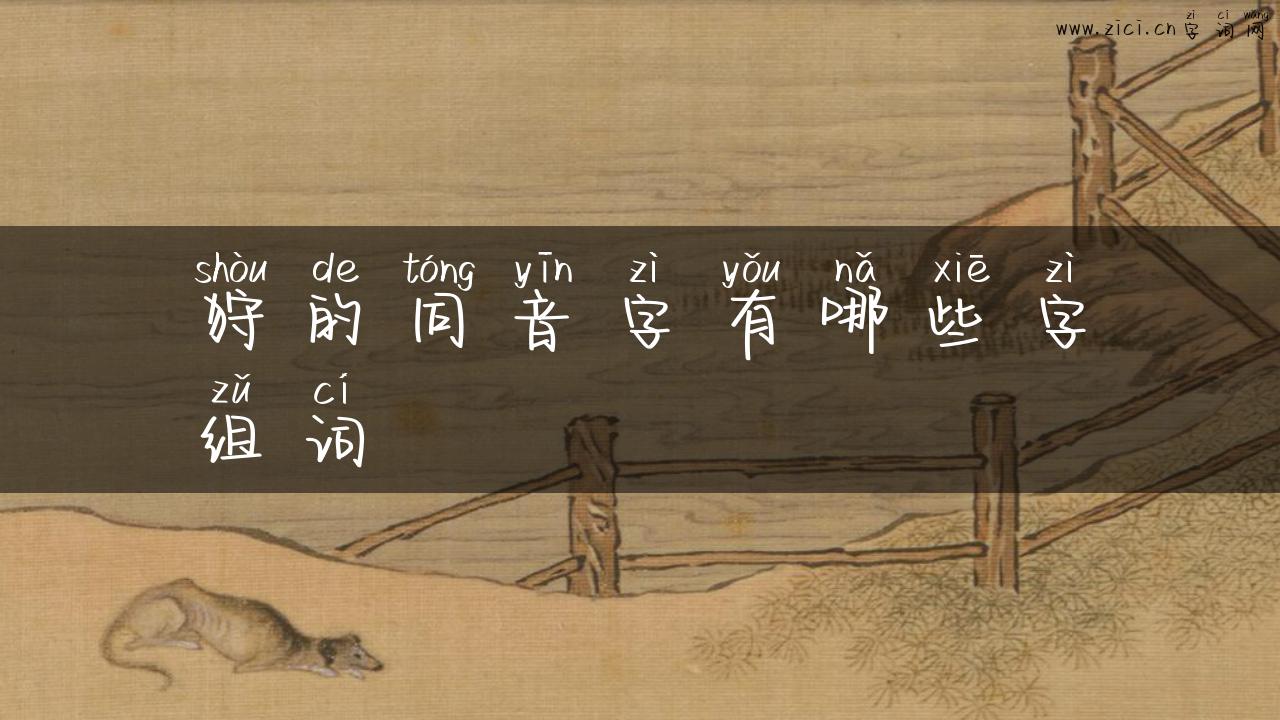 zi ci wang
www.zici.cn字词网
shòu de tóng yīn zì yǒu nǎ xiē zì
狩的同音字有哪些字
zǔ cí
组词